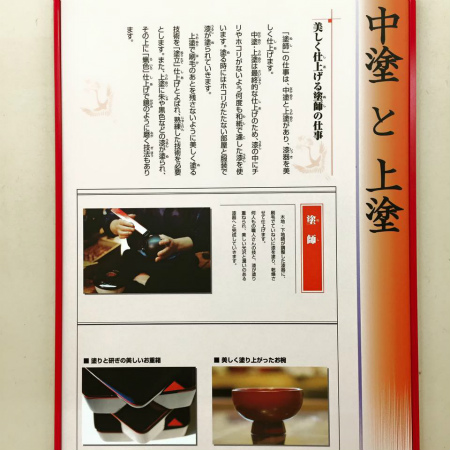 中塗と上塗
美しく仕上げる塗師の仕事
「塗師」の仕事は、中塗と上塗があり、漆器を美
しく仕上げます。
中塗・上塗は最終的な仕上げのため、漆の中にチ
リやホコリがないよう何度も和紙で濾した漆を使
います。塗る時にはホコリがたたない部屋と服装で
漆が塗られていきます。
上塗で刷毛のあとを残さないように美しく塗る
技術を「塗立」仕上げとよばれ、熟練した技術を必要
とします。また、上塗に朱や黒色などの漆が塗られ、
その上に「蝋色」仕上げで鏡のように磨く技法もあり
ます。
塗師
木地・下地師が調製した漆器に、
刷毛でていねいに漆を塗り、乾燥さ
せて仕上げます。
何人もの職人さんの技と、漆が塗り
重ねられ、美しい光沢と潤いのある
漆器へと完成していきます。
■ 塗りと研ぎの美しいお重箱
■ 美しく塗り上がったお椀